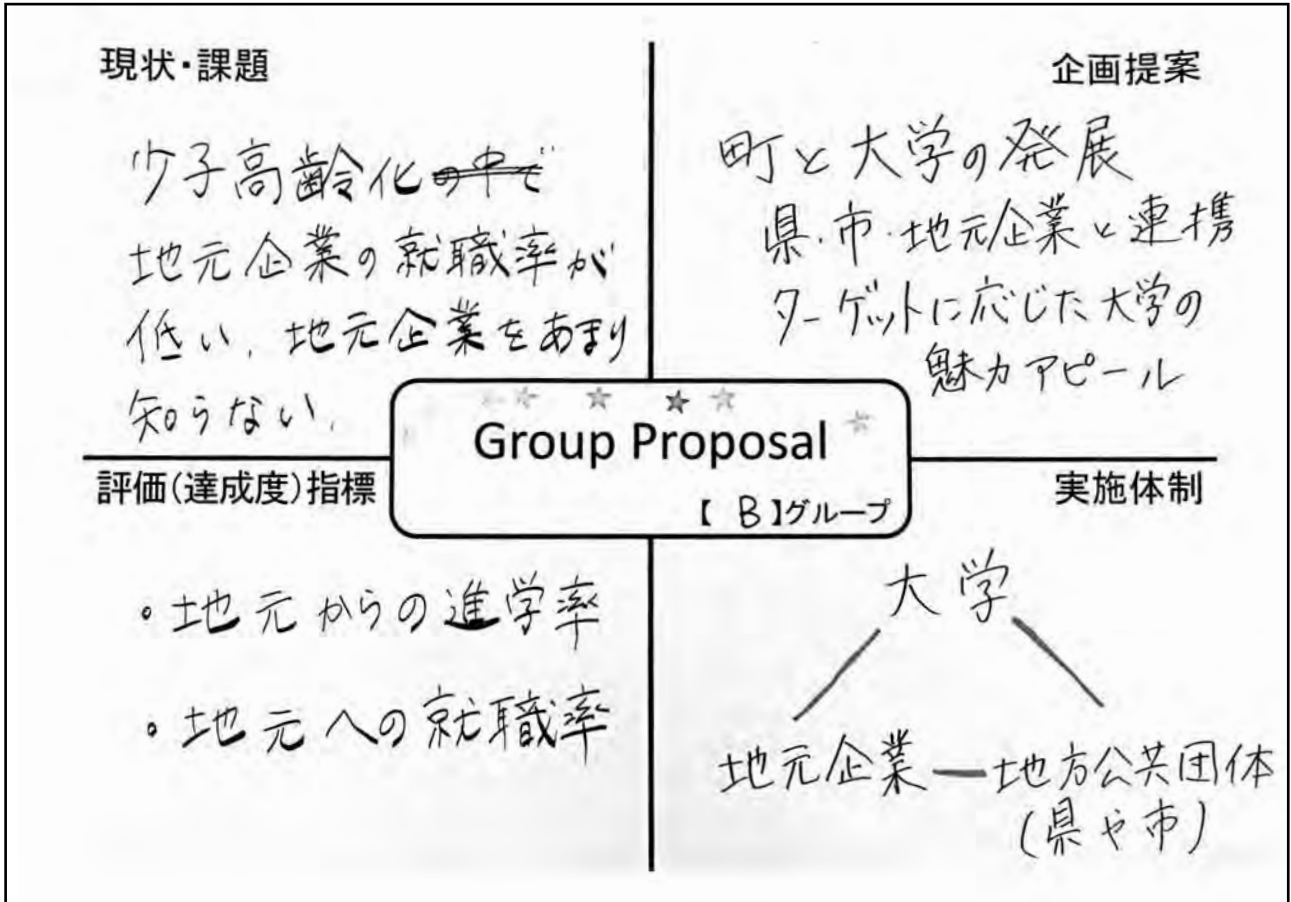 現状・課題
少子高齢化の中で
地元企業の就職率が
低い、地元企業をあまり
知らない、
企画提案
町と大学の発展
県・市・地元企業と連携
ターゲットに応じた大学の
魅力アピール
Group Proposal
【 B 】グループ
評価(達成度)指標
・地元からの進学率
・地元への就職率
実施体制
大学
地元企業 — 地方公共団体
(県や市)